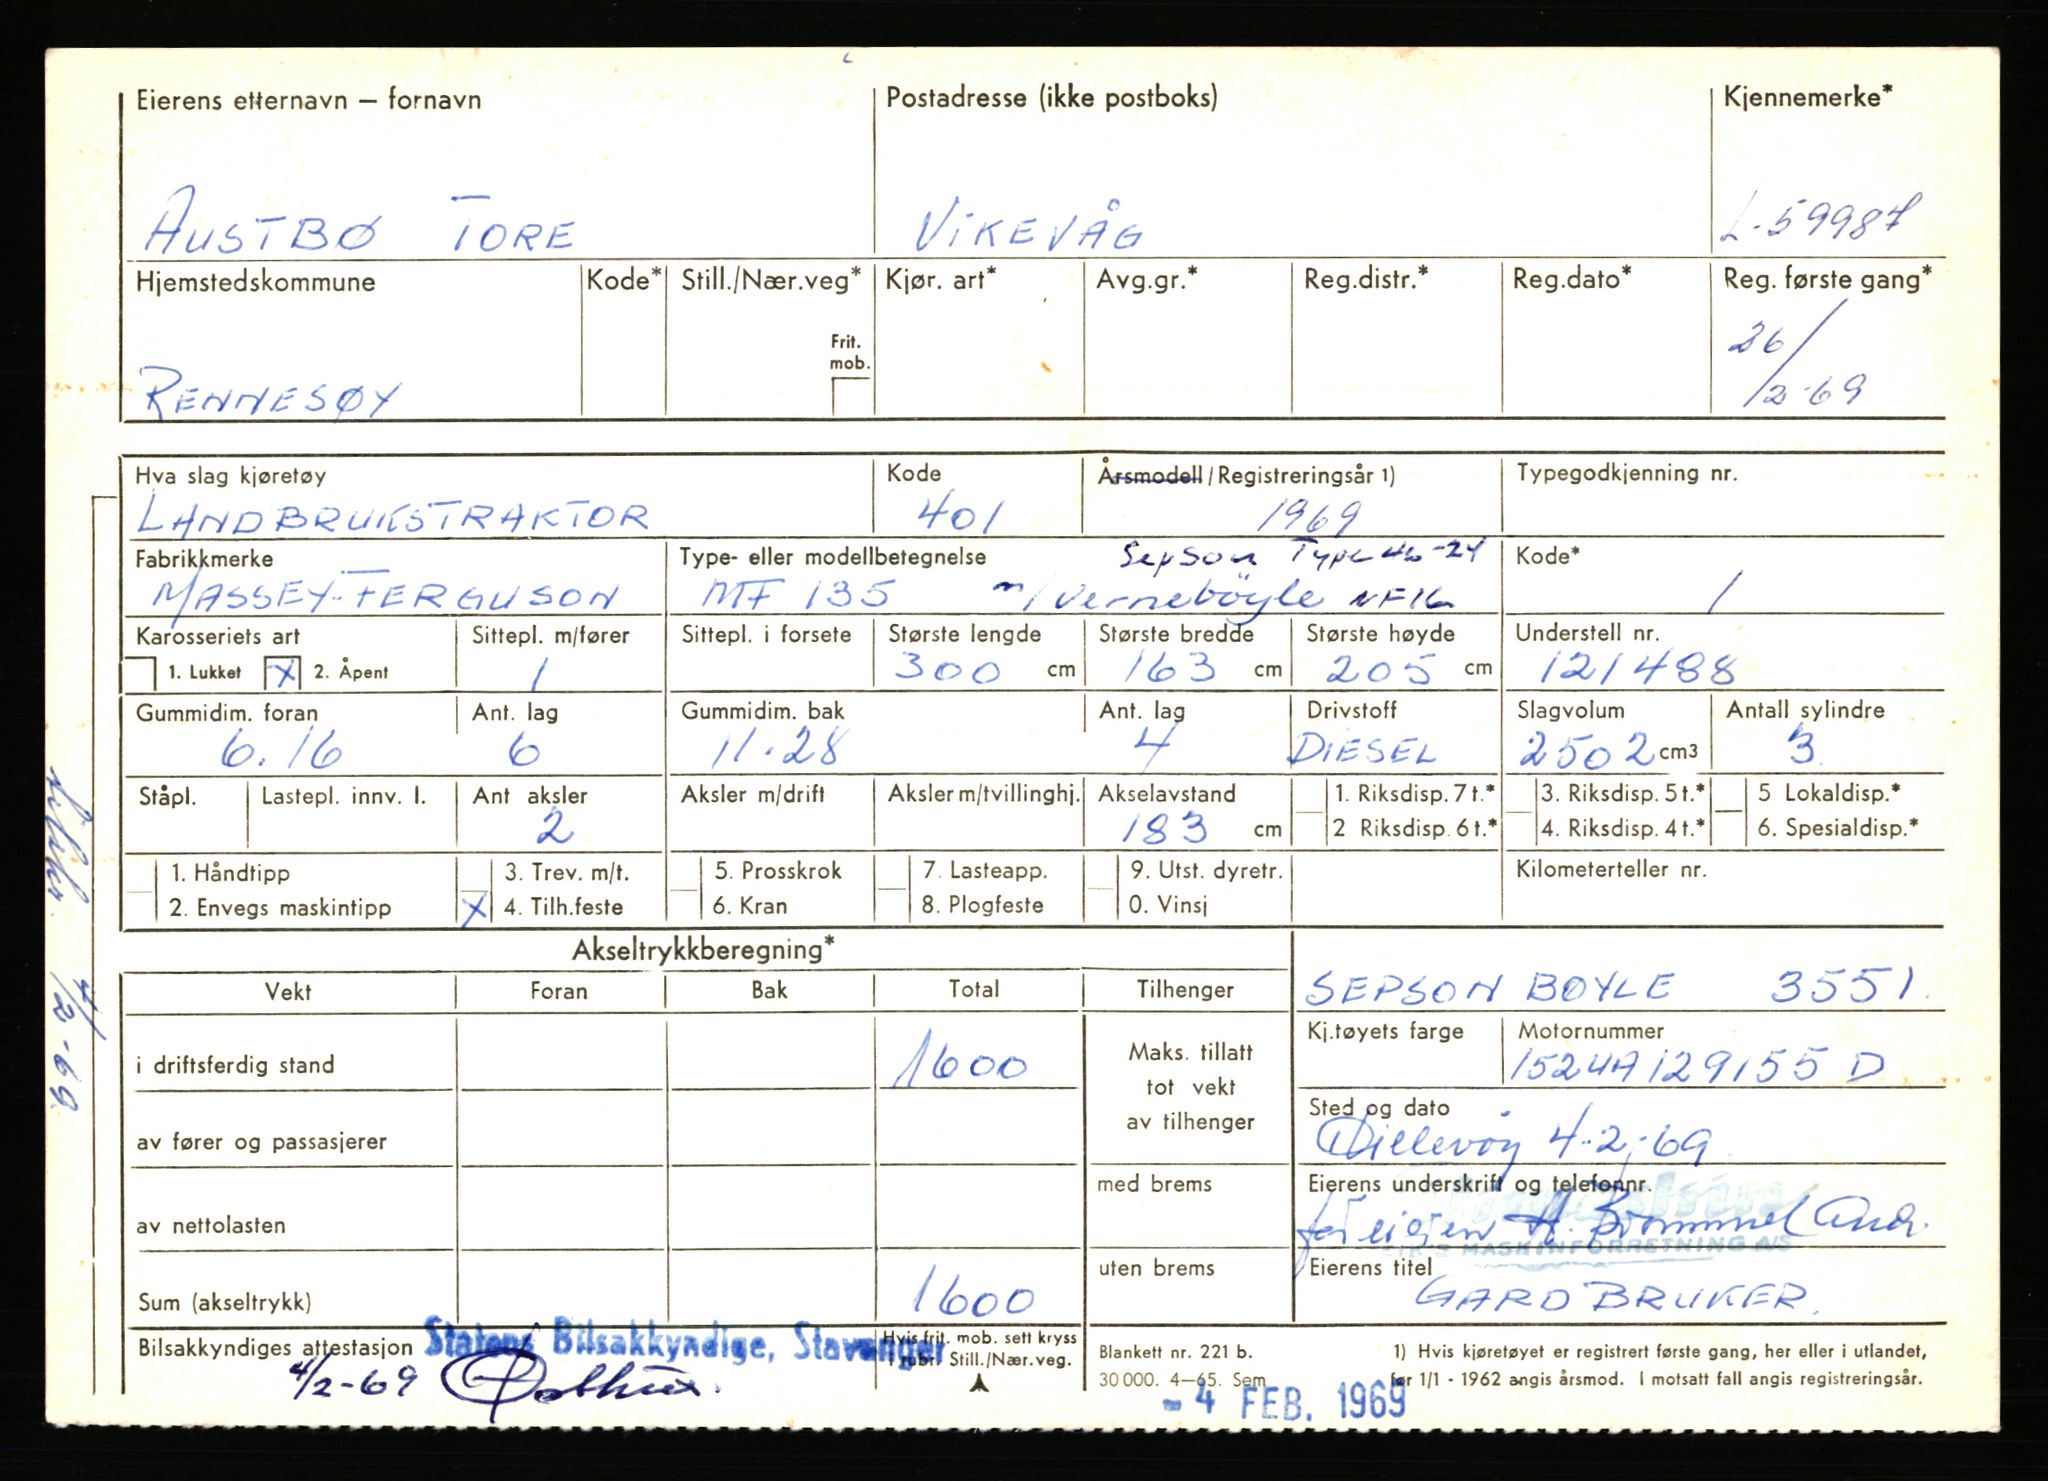 Eierens etternavn – fornavn
Postadresse (ikke postboks)
Kjennemerke*
AUSTBØ TORE
VIKEVÅG
L-59987
Hjemstedskommune
Kode*
Still./Nær.veg*
Kjør. art*
Avg.gr.*
Reg.distr.*
Reg.dato*
Reg. første gang*
Frit.
mob.
RENNESØY
26/2-69
Hva slag kjøretøy
Kode
Årsmodell/Registreringsår 1)
Typegodkjenning nr.
LANDBRUKSTRAKTOR
401
1969
Fabrikkmerke
Type- eller modellbetegnelse
Sepson Type 46-24
Kode*
MASSEY-FERGUSON
MF 135 m/Verneböyle NF16
1
Karosseriets art
Sittepl. m/fører
Sittepl. i forsete
Største lengde
Største bredde
Største høyde
Understell nr.
1. Lukket
X 2. Åpent
1
300 cm
163 cm
205 cm
121488
Gummidim. foran
Ant. lag
Gummidim. bak
Ant. lag
Drivstoff
Slagvolum
Antall sylindre
6.16
6
11.28
4
DIESEL
2502 cm3
3
Ståpl.
Lastepl. innv. l.
Ant aksler
Aksler m/drift
Aksler m/tvillinghj.
Akselavstand
1. Riksdisp. 7 t.*
3. Riksdisp. 5 t.*
5 Lokaldisp.*
2
183 cm
2 Riksdisp. 6 t.*
4. Riksdisp. 4 t.*
6. Spesialdisp.*
1. Håndtipp
3. Trev. m/t.
5. Prosskrok
7. Lasteapp.
9. Utst. dyretr.
Kilometerteller nr.
2. Envegs maskintipp
X 4. Tilh.feste
6. Kran
8. Plogfeste
0. Vinsj
Akseltrykkberegning*
Vekt
Foran
Bak
Total
Tilhenger
SEPSON BØYLE 3551.
Kj.tøyets farge
Motornummer
i driftsferdig stand
1600
Maks. tillatt
tot vekt
av tilhenger
152UA129155 D
Sted og dato
4-2-69
av fører og passasjerer
med brems
Eierens underskrift og telefonnr.
av nettolasten
for eigen
MASKINFORRETNING A/S
uten brems
Eierens titel
Sum (akseltrykk)
1600
GARDBRUKER.
Bilsakkyndiges attestasjon
Statens Bilsakkyndige, Stavanger
Hvis frit. mob. sett kryss
i rubr. Still./Nær.veg.
4/2-69
Blankett nr. 221 b.
30 000. 4–65. Sem
1) Hvis kjøretøyet er registrert første gang, her eller i utlandet,
før 1/1 - 1962 angis årsmod. I motsatt fall angis registreringsår.
- 4 FEB. 1969
4/2-69